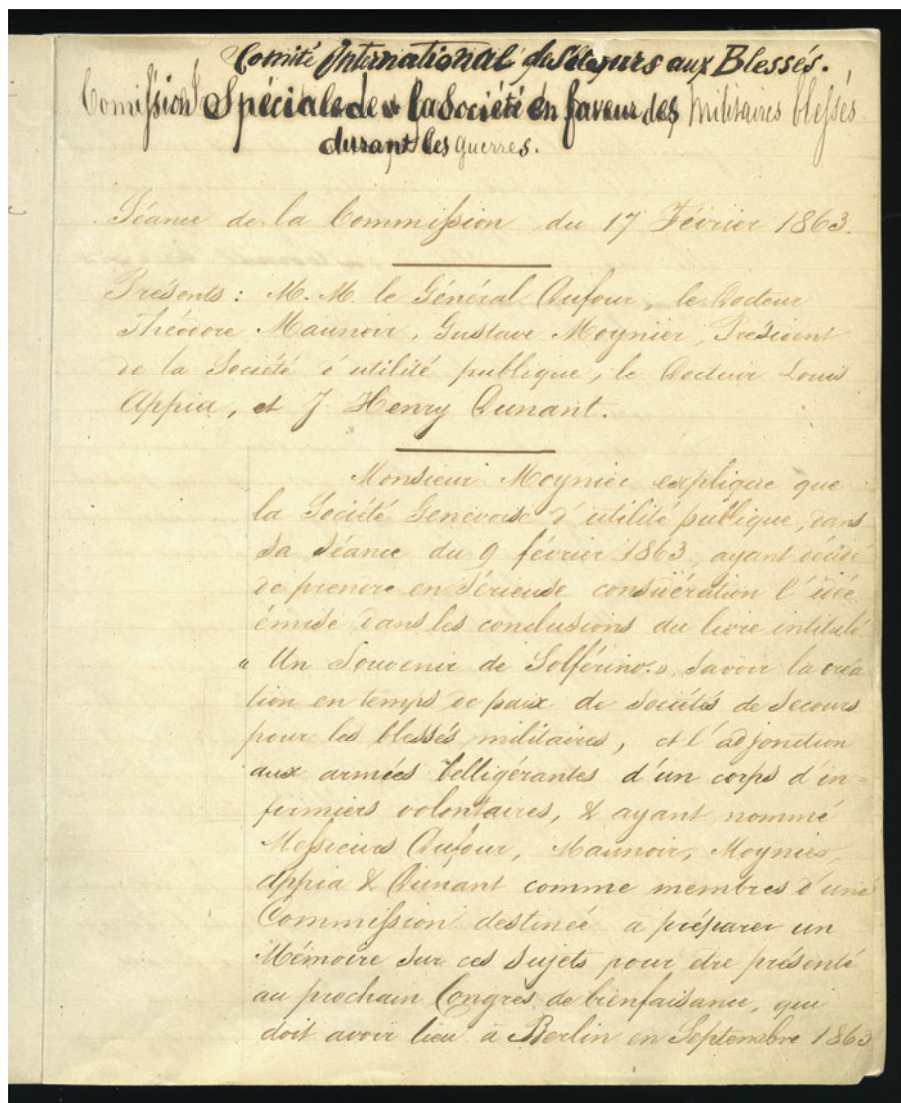 Comité International de Secours aux Blessés.
Comission Spéciale de la Société en faveur des Militaires blessés
durant les guerres.
Séance de la Commission du 17 Février 1863.
Présents : M. M. le Général Dufour, le Docteur
Théodore Maunoir, Gustave Moynier, Président
de la Société d'utilité publique, le Docteur Louis
Appia, et J. Henry Dunant.
Monsieur Moynier explique que
la Société Genevoise d'utilité publique, dans
sa séance du 9 février 1863, ayant décidé
de prendre en sérieuse considération l'idée
émise dans les conclusions du livre intitulé
« Un Souvenir de Solférino », savoir la créa
tion en temps de paix de sociétés de secours
pour les blessés militaires, et l'adjonction
aux armées belligérantes d'un corps d'in-
firmiers volontaires, & ayant nommé
Messieurs Dufour, Maunoir, Moynier,
Appia & Dunant comme membres d'une
Commission destinée a préparer un
Mémoire sur ces sujets pour être présenté
au prochain Congrès de bienfaisance, qui
doit avoir lieu à Berlin en Septembre 1863